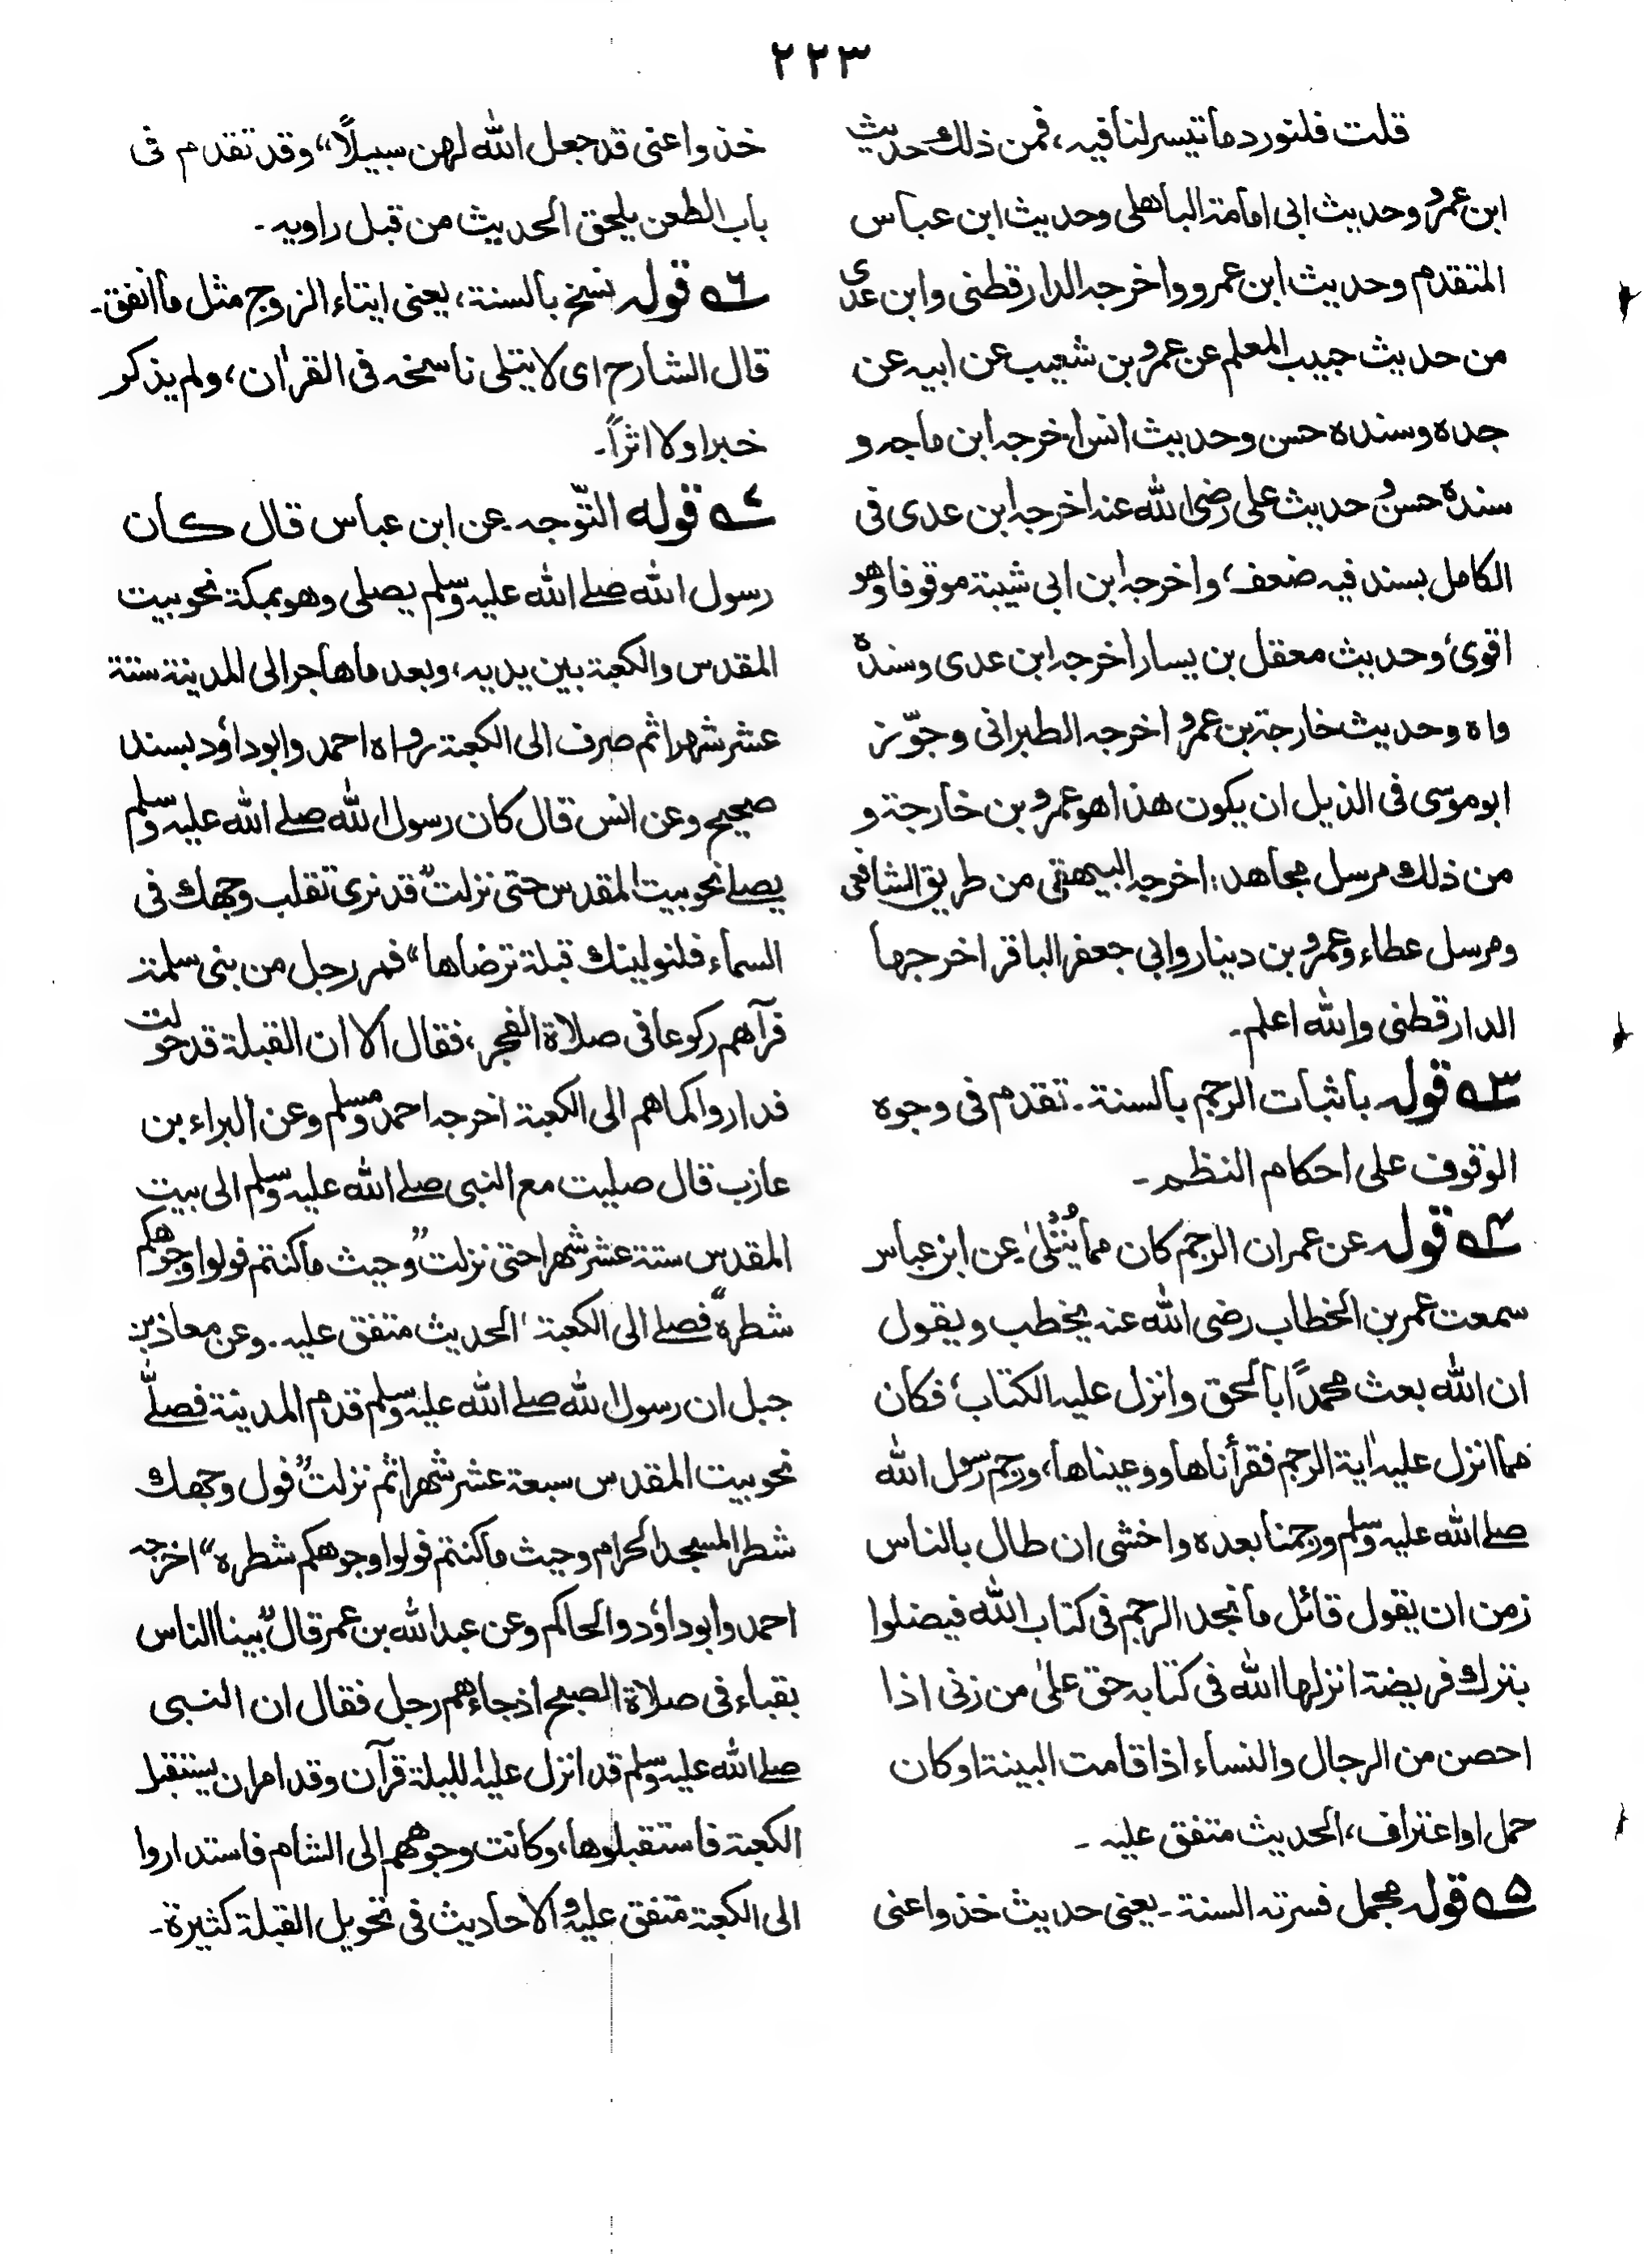 ٢٢٣
قلت فلنورد ما تيسر لنا فيه، فمن ذلك حديث
ابن عمرو وحديث ابى امامة الباهلى وحديث ابن عباس
المتقدم وحديث ابن عمرو واخرجه الدارقطنى وابن عدى
من حديث حبيب المعلم عن عمرو بن شعيب عن ابيه عن
جده وسنده حسن وحديث انس اخرجه ابن ماجه و
سنده حسن و حديث على رضى الله عنه اخرجه ابن عدى فى
الكامل بسند فيه ضعف، واخرجه ابن ابى شيبة موقوفا وهو
اقوىٰ وحديث معقل بن يسار اخرجه ابن عدى وسنده
واه وحديث خارجة بن عمرو اخرجه الطبرانى وجوّز
ابو موسى فى الذيل ان يكون هذا هو عمرو بن خارجة و
من ذلك مرسل مجاهد: اخرجه البيهقى من طريق الشافعى
ومرسل عطاء وعمرو بن دينار وابى جعفر الباقر اخرجها
الدارقطنى والله اعلم۔
٣ قوله باثبات الرجم بالسنة۔ تقدم فى وجوه
الوقوف على احكام النظم۔
٤ قوله عن عمر ان الرجم كان مما يُتْلىٰ۔ عن ابن عباس
سمعت عمر بن الخطاب رضى الله عنه يخطب ويقول
ان الله بعث محمدًا بالحق وانزل عليه الكتاب، فكان
مما انزل عليه اٰية الرجم فقرأناها ووعيناها، ورجم رسول الله
صلى الله عليه وسلم ورجمنا بعده واخشى ان طال بالناس
زمن ان يقول قائل ما نجد الرجم فى كتاب الله فيضلوا
بترك فريضة انزلها الله فى كتابه حق علىٰ من زنى اذا
احصن من الرجال والنساء اذا قامت البينة او كان
حمل او اعتراف، الحديث متفق عليه ۔
٥ قوله مجمل فسرته السنة۔ يعنى حديث خذوا عنى
خذوا عنى قد جعل الله لهن سبيلًا“ وقد تقدم فى
باب الطعن يلحق الحديث من قبل راويه ۔
٦ قوله نسخ بالسنة، يعنى ايتاء الزوج مثل ما انفق۔
قال الشارح اى لا يتلى ناسخه فى القراٰن، ولم يذكر
خبرا ولا اثراً۔
٧ قوله التّوجه۔ عن ابن عباس قال كان
رسول الله صلى الله عليه وسلم يصلى وهو بمكة نحو بيت
المقدس والكعبة بين يديه، وبعد ما هاجر الى المدينة ستة
عشر شهرا ثم صرف الى الكعبة رواه احمد وابوداؤد بسند
صحيح وعن انس قال كان رسول الله صلى الله عليه وسلم
يصلى نحو بيت المقدس حتى نزلت ”قد نرى تقلب وجهك فى
السماء فلنولينك قبلة ترضاها“ فمر رجل من بنى سلمة
فرآهم ركوعا فى صلاة الفجر، فقال الا ان القبلة قد حولت
فداروا كما هم الى الكعبة اخرجه احمد ومسلم وعن البراء بن
عازب قال صليت مع النبى صلى الله عليه وسلم الى بيت
المقدس ستة عشر شهرا حتى نزلت ”وحيث ما كنتم فولوا وجوهكم
شطره“ فصلى الى الكعبة، الحديث متفق عليه۔ وعن معاذ بن
جبل ان رسول الله صلى الله عليه وسلم قدم المدينة فصلّى
نحو بيت المقدس سبعة عشر شهرا ثم نزلت ”فول وجهك
شطر المسجد الحرام وحيث ما كنتم فولوا وجوهكم شطره“ اخرجه
احمد وابوداؤد والحاكم وعن عبد الله بن عمر قال ”بينا الناس
بقباء فى صلاة الصبح اذ جاءهم رجل فقال ان النبى
صلى الله عليه وسلم قد انزل عليه الليلة قرآن وقد امر ان يستقبل
الكعبة فاستقبلوها، وكانت وجوههم الى الشام فاستداروا
الى الكعبة متفق عليه و الاحاديث فى تحويل القبلة كثيرة۔